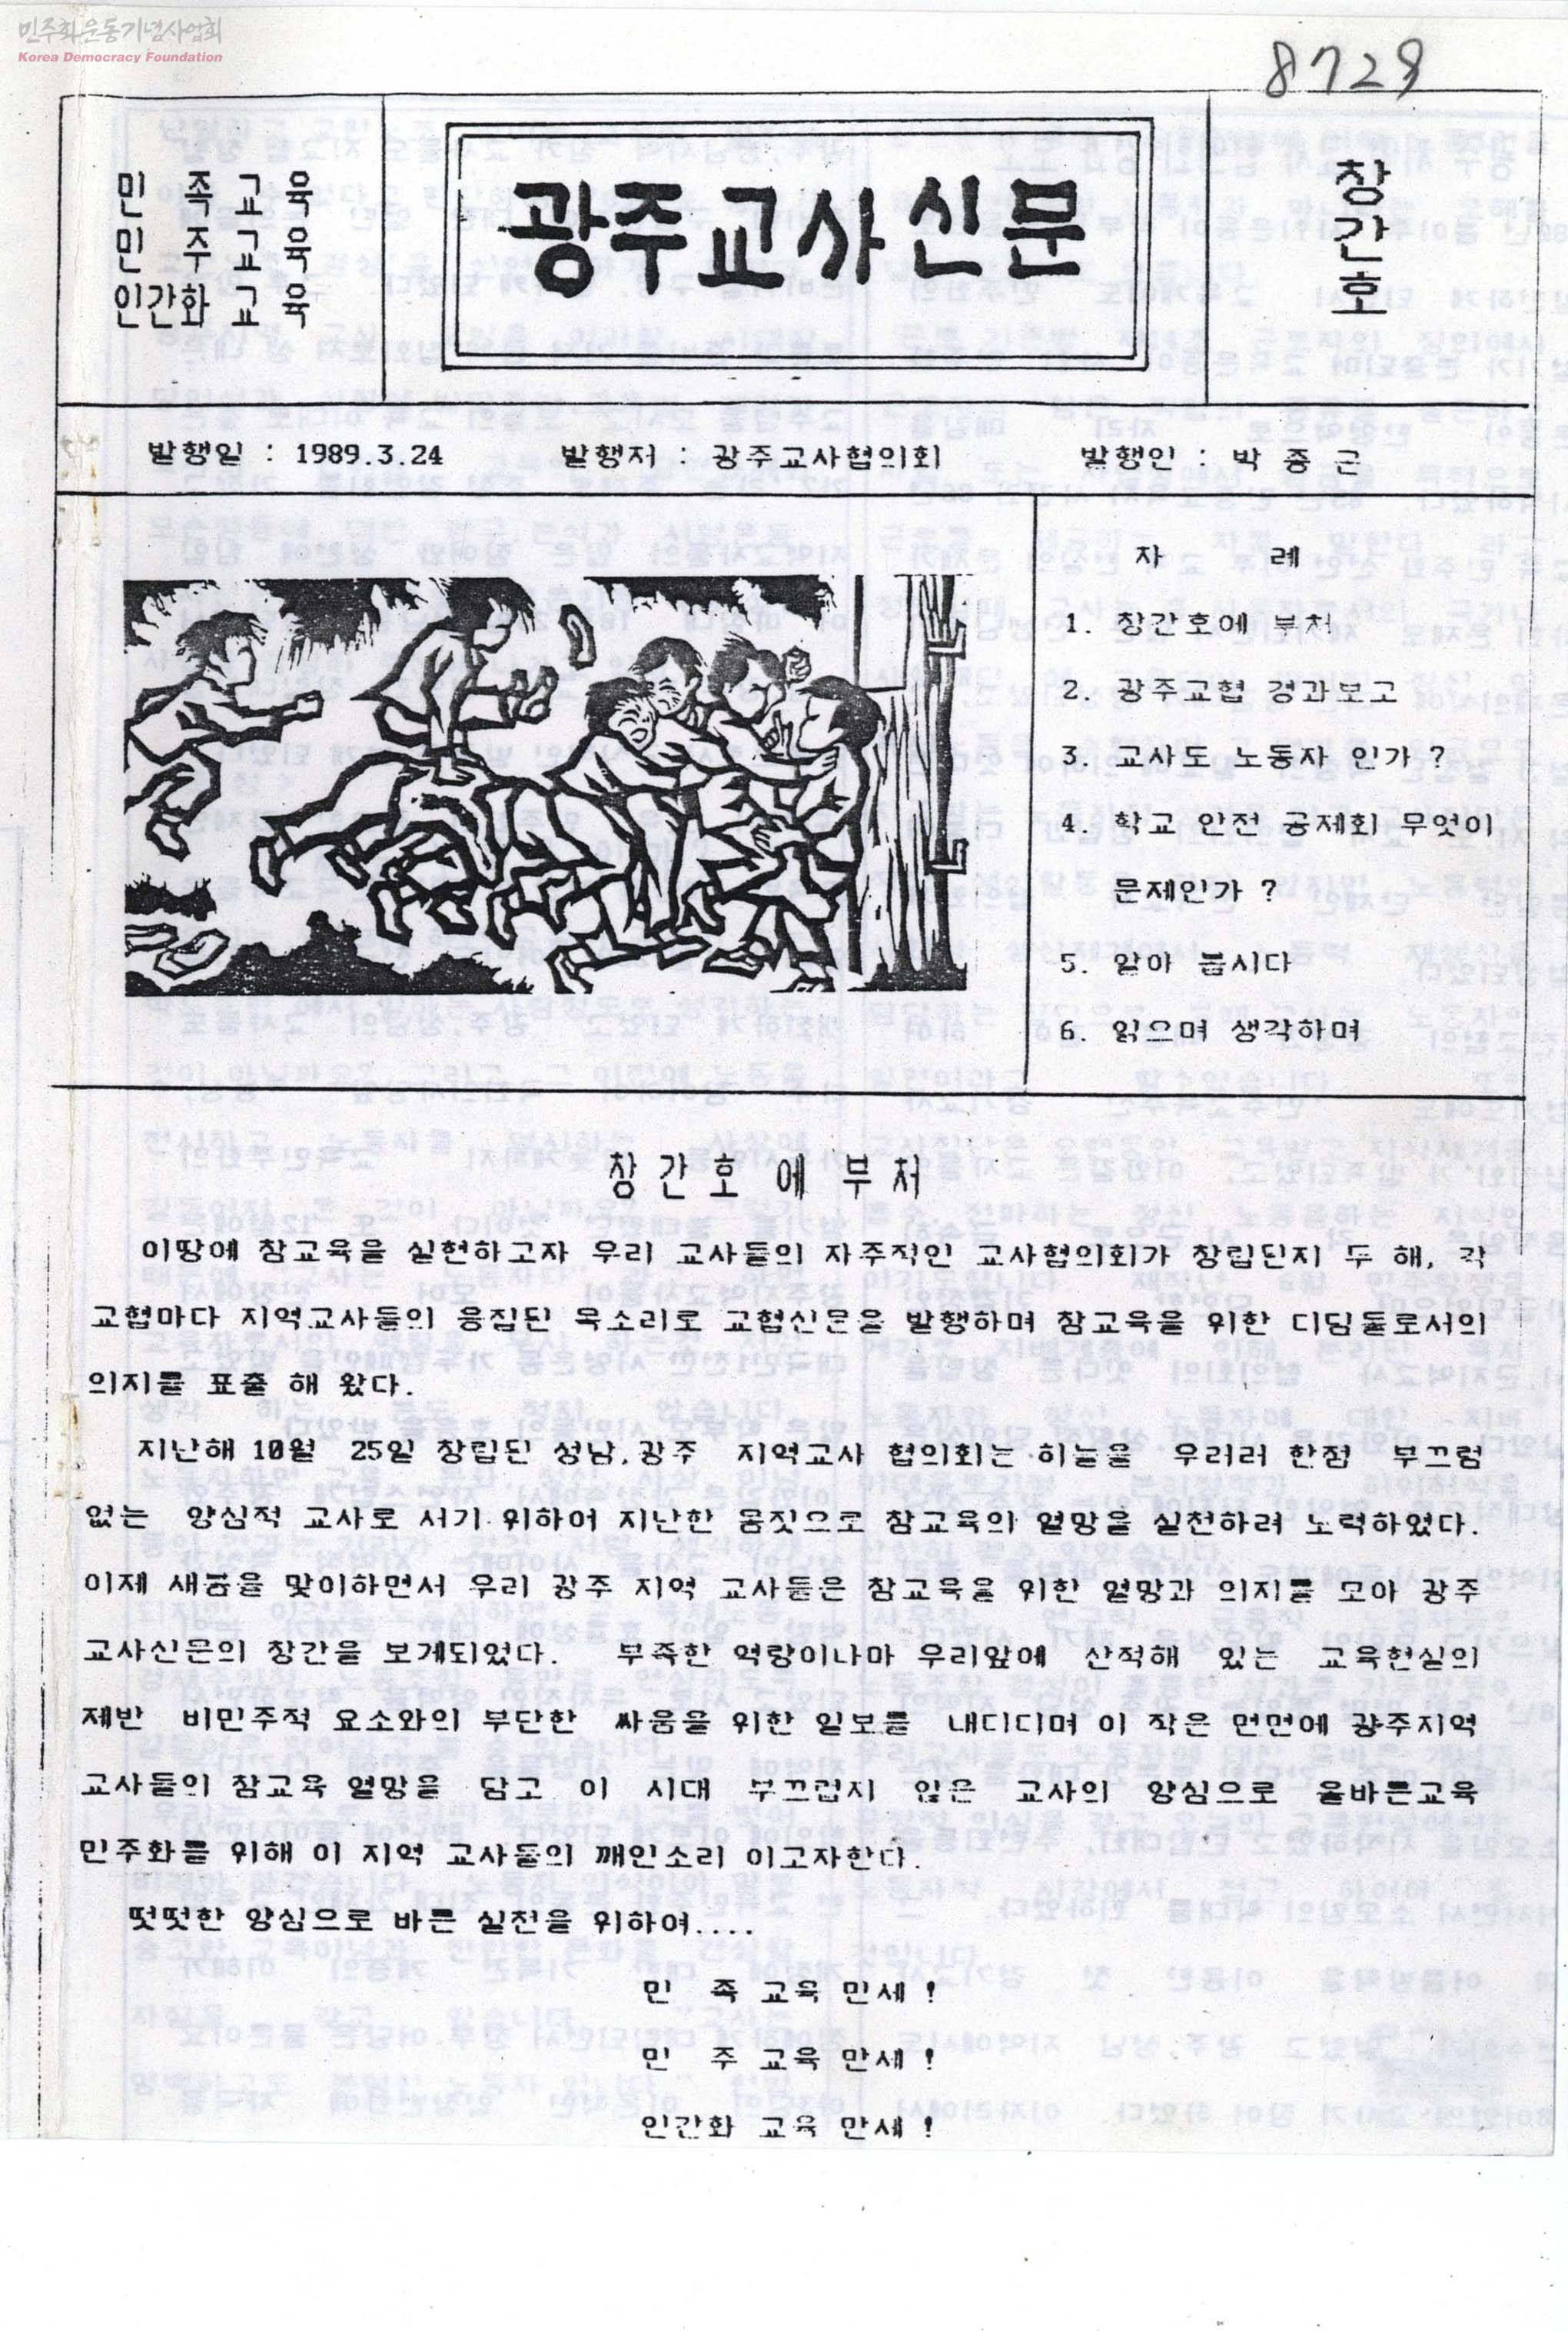 민주화운동기념사업회
Korea Democracy Foundation
8729
민 족 교 육
민 주 교 육
인간화 교 육
광주교사신문
창간호
발행일 : 1989.3.24 발행처 : 광주교사협의회 발행인 : 박 종 근
차 례
1. 창간호에 부쳐
2. 광주교협 경과보고
3. 교사도 노동자 인가 ?
4. 학교 안전 공제회 무엇이
문제인가 ?
5. 알아 봅시다
6. 읽으며 생각하며
창 간 호 에 부 쳐
이땅에 참교육을 실현하고자 우리 교사들의 자주적인 교사협의회가 창립된지 두 해, 각
교협마다 지역교사들의 응집된 목소리로 교협신문을 발행하며 참교육을 위한 디딤돌로서의
의지를 표출 해 왔다.
지난해 10월 25일 창립된 성남,광주 지역교사 협의회는 하늘을 우러러 한점 부끄럼
없는 양심적 교사로 서기 위하여 지난한 몸짓으로 참교육의 열망을 실천하려 노력하였다.
이제 새봄을 맞이하면서 우리 광주 지역 교사들은 참교육을 위한 열망과 의지를 모아 광주
교사신문의 창간을 보게되었다. 부족한 역량이나마 우리앞에 산적해 있는 교육현실의
제반 비민주적 요소와의 부단한 싸움을 위한 일보를 내디디며 이 작은 면면에 광주지역
교사들의 참교육 열망을 담고 이 시대 부끄럽지 않은 교사의 양심으로 올바른교육
민주화를 위해 이 지역 교사들의 깨인소리 이고자한다.
떳떳한 양심으로 바른 실천을 위하여....
민 족 교육 만세 !
민 주 교육 만세 !
인간화 교육 만세 !